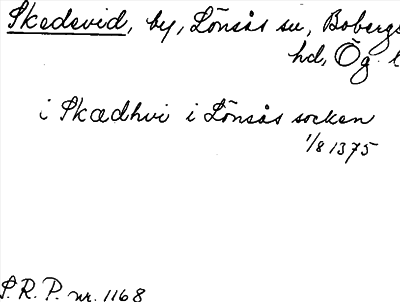 Skedevid, by, Lönsås sn, Bobergs
hd, Ög. l
i Skædhvi i Lönsås socken
1/8 1375
S.R.P. nr. 1168